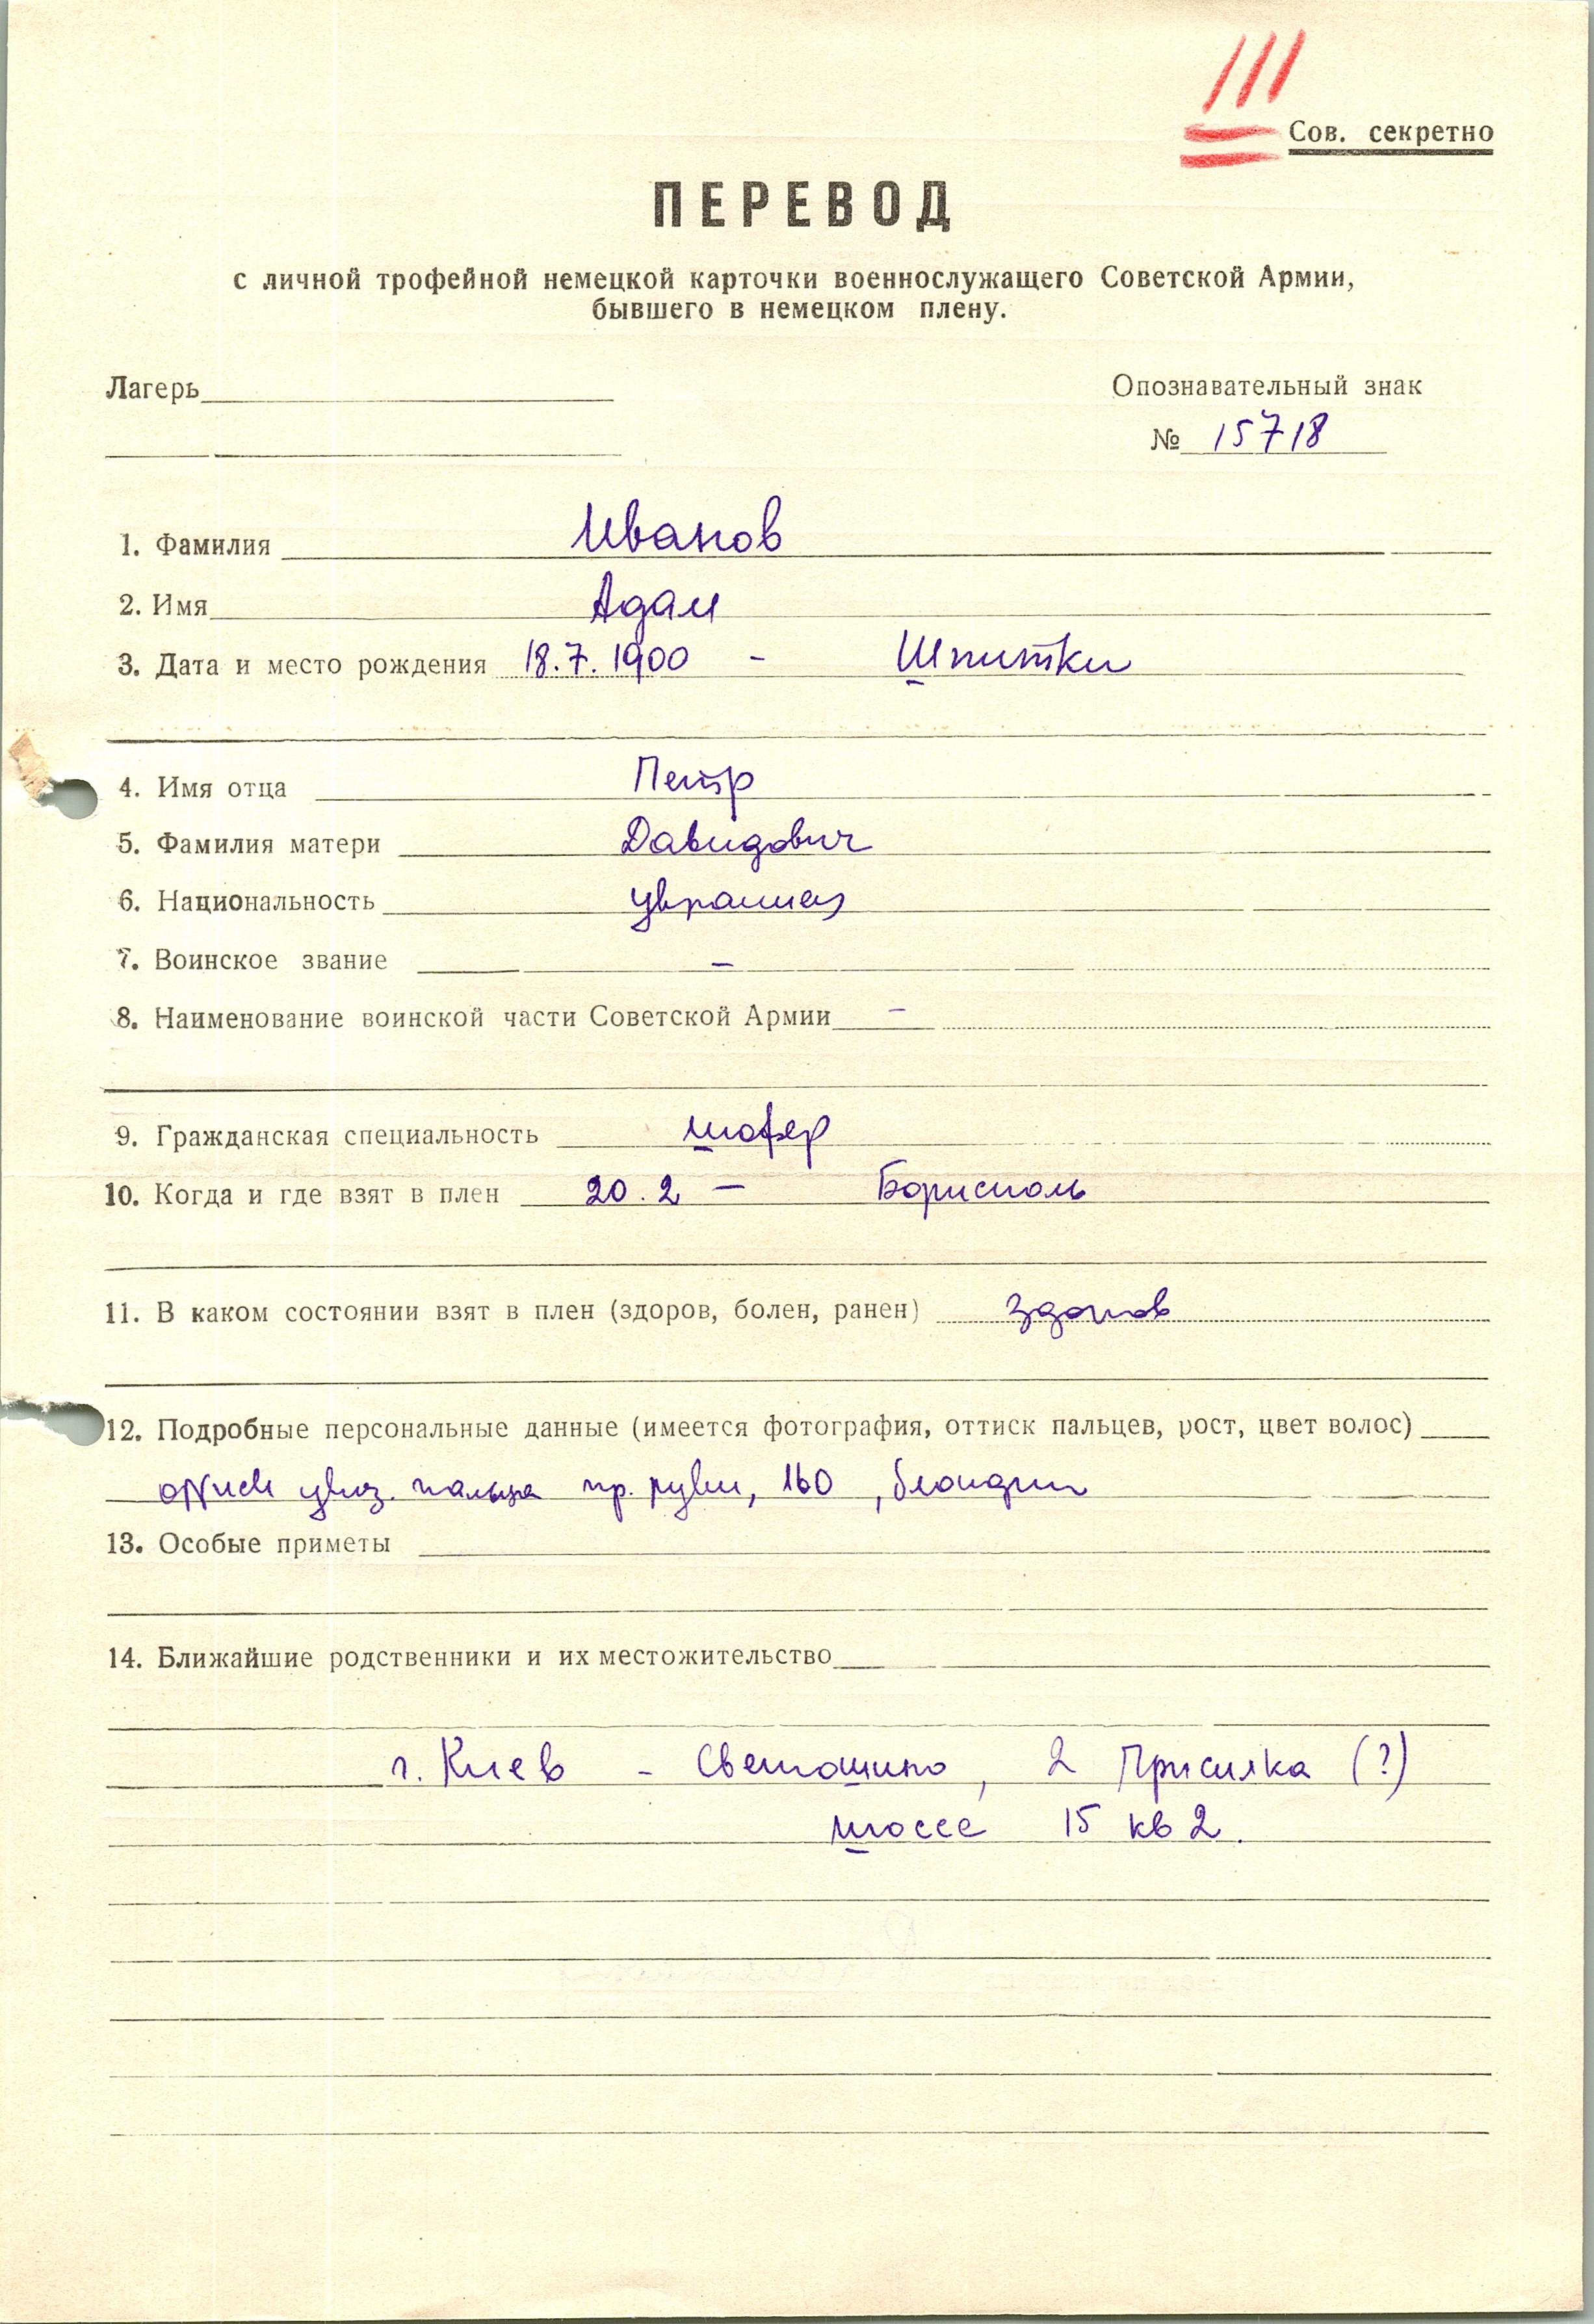 Сов. секретно
ПЕРЕВОД
с личной трофейной немецкой карточки военнослужащего Советской Армии,
бывшего в немецком плену.
Лагерь
Опознавательный знак
№ 15718
1. Фамилия Иванов
2. Имя Адам
3. Дата и место рождения 18.7.1900 - Шпитки
4. Имя отца Петр
5. Фамилия матери Давидович
6. Национальность украинец
7. Воинское звание —
8. Наименование воинской части Советской Армии —
9. Гражданская специальность шофер
10. Когда и где взят в плен 20.2 — Борисполь
11. В каком состоянии взят в плен (здоров, болен, ранен) здоров
12. Подробные персональные данные (имеется фотография, оттиск пальцев, рост, цвет волос)
оттиск указ. пальца пр. руки, 160, блондин
13. Особые приметы
14. Ближайшие родственники и их местожительство
г. Киев - Светошино, 2 Присилка (?)
шоссе 15 кв 2.